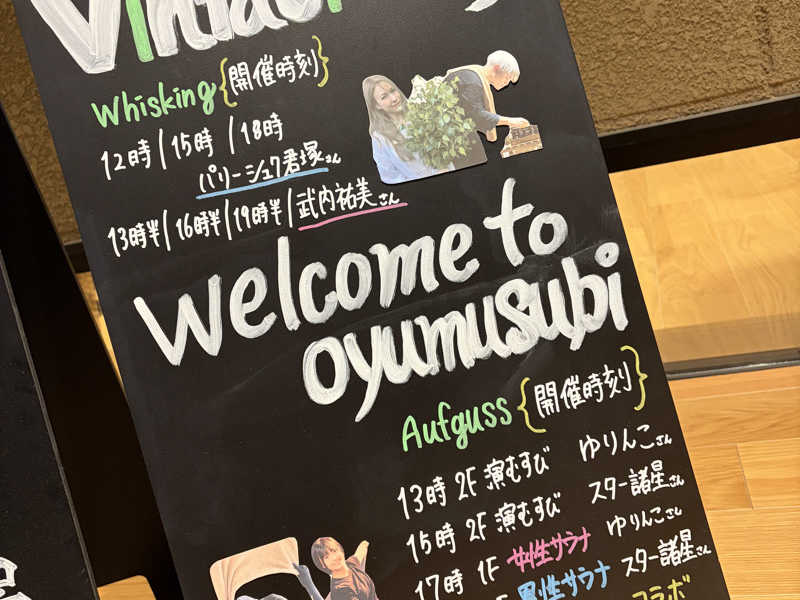 Whisking {開催時刻}
12時/15時/18時
パリーシュワ君塚さん
13時半/16時半/19時半/武内祐美さん
Welcome to
oyumusubi
Aufguss {開催時刻}
13時 2F 演むすび ゆりんこさん
15時 2F 演むすび スター諸星さん
17時 1F 女性サウナ ゆりんこさん
男性サウナ スター諸星さん
コラボ